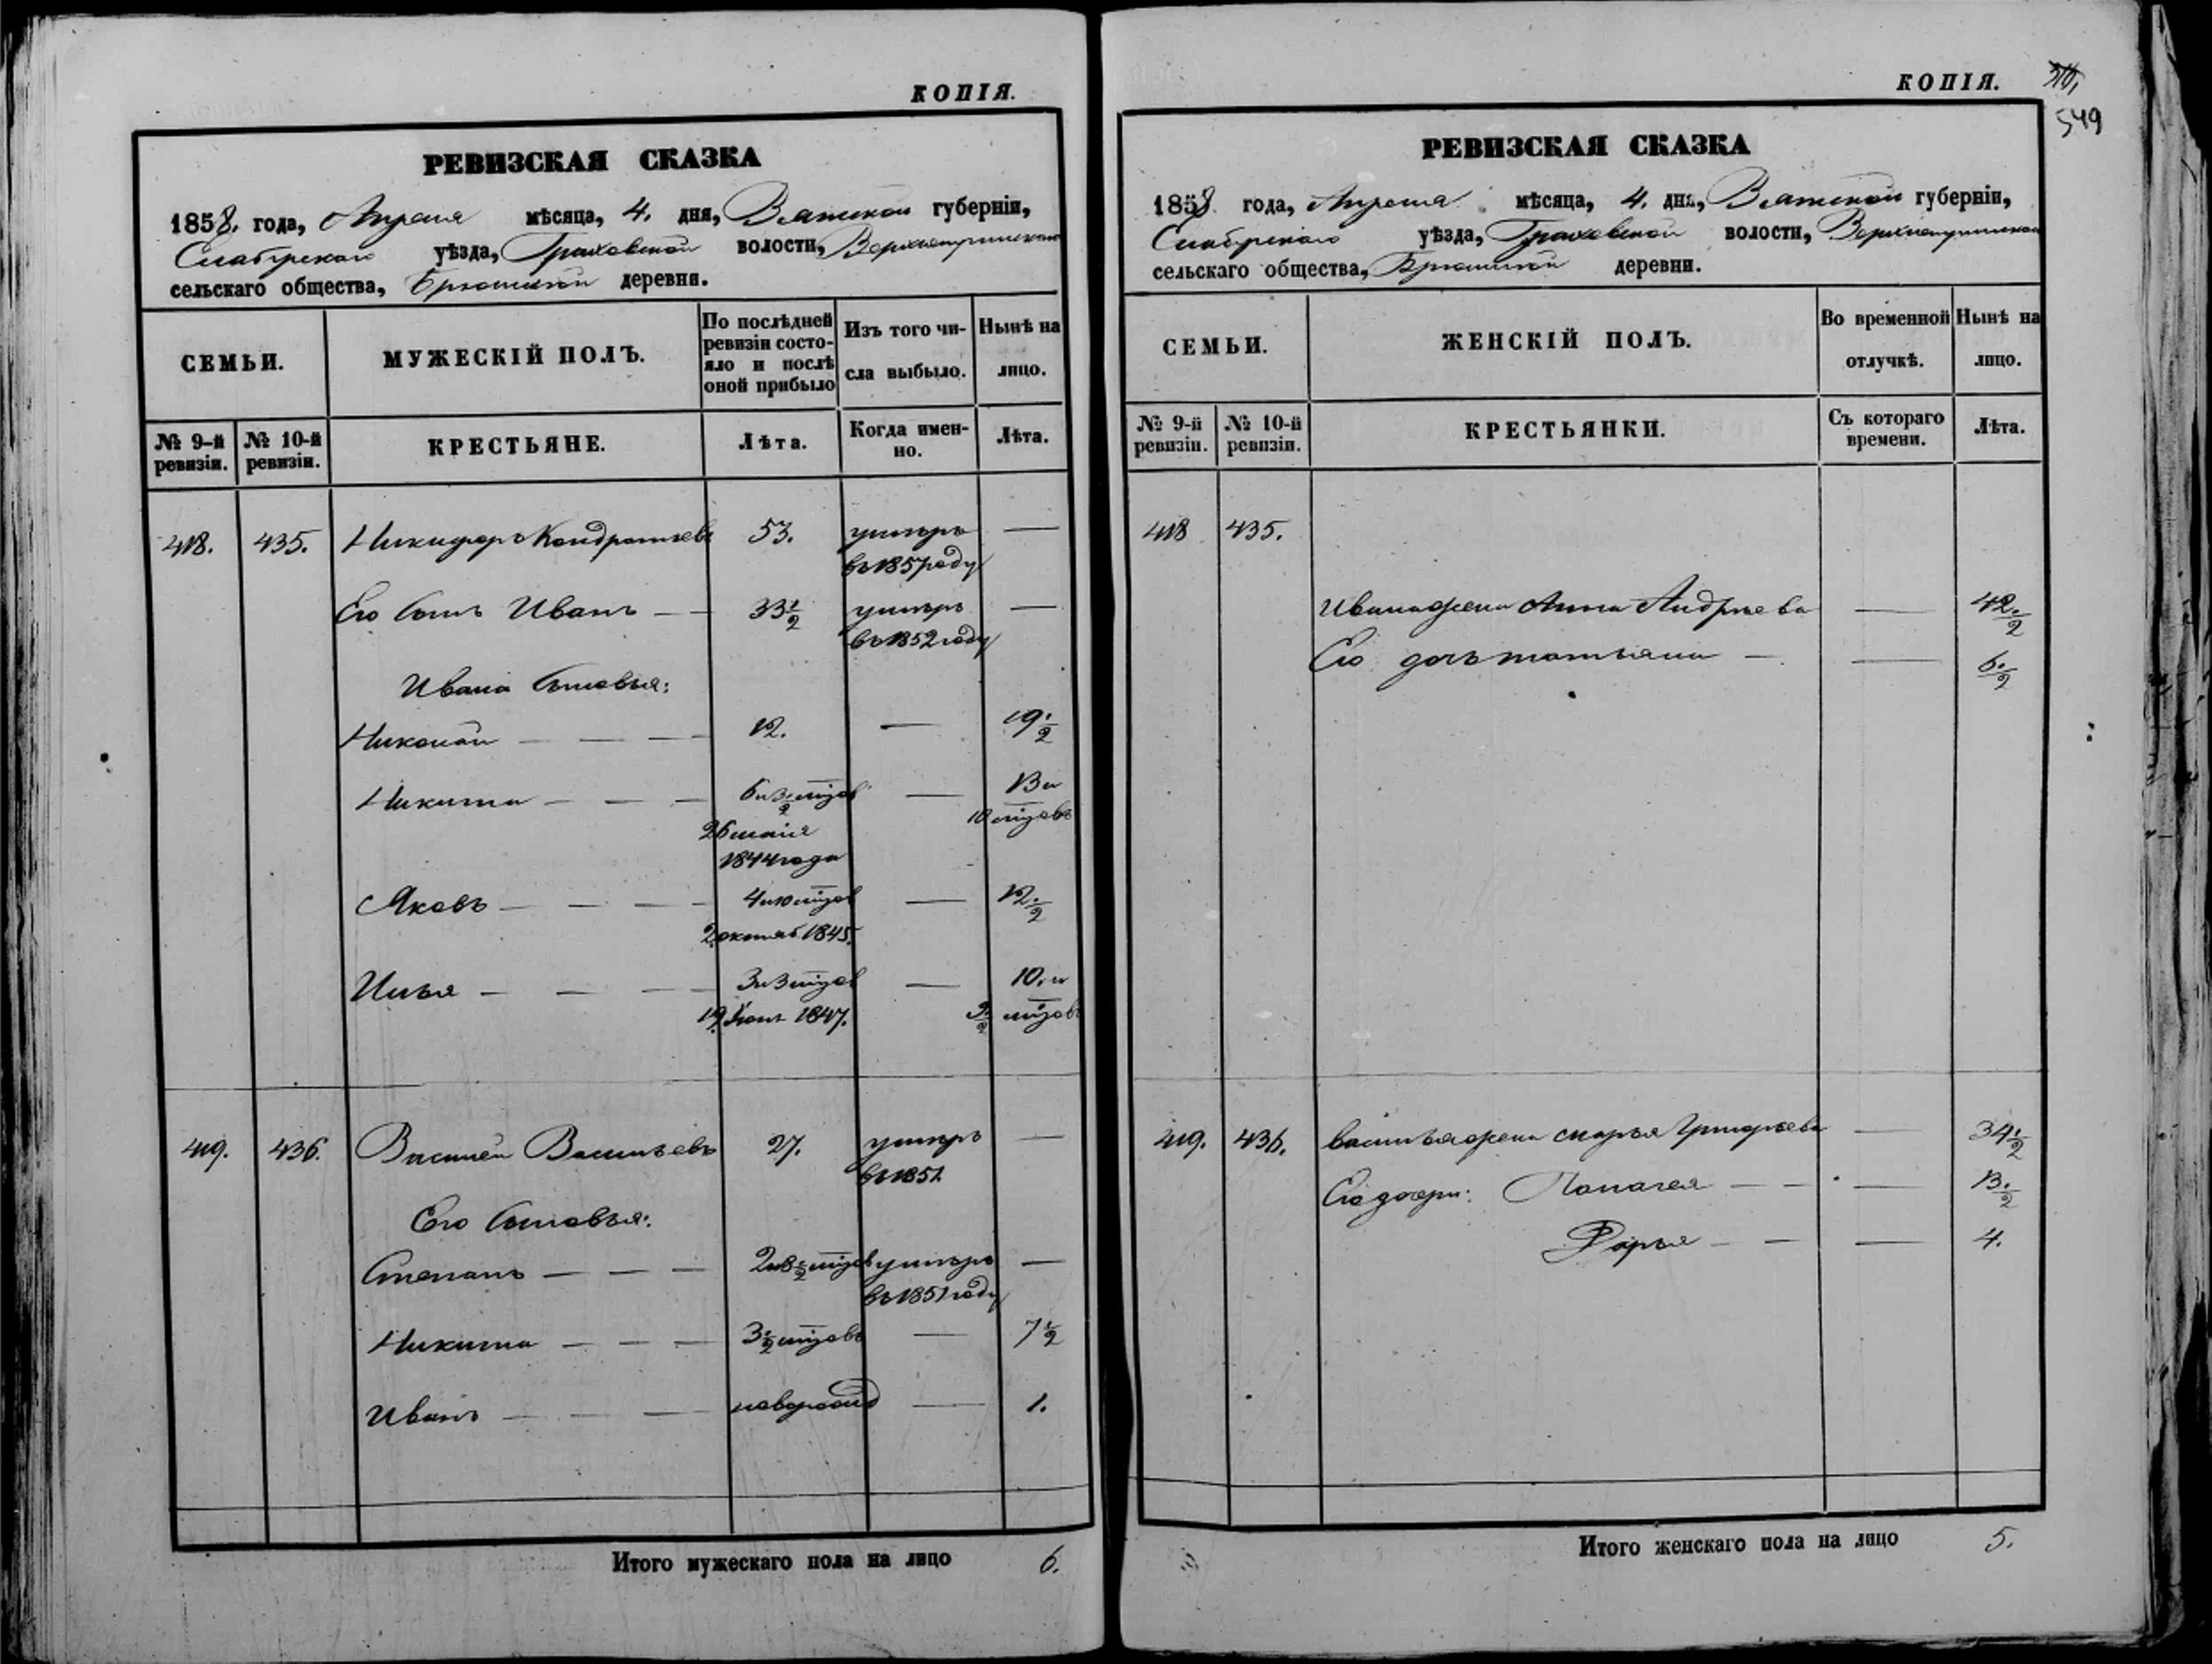 КОПІЯ.
РЕВИЗСКАЯ СКАЗКА
1858. года, Апреля мѣсяца, 4. дня, Вятской губерніи,
Слабугскаго уѣзда, Граховской волости,
сельскаго общества, деревни.
СЕМЬИ.
МУЖЕСКІЙ ПОЛЪ.
По послѣдней ревизіи состояло и послѣ оной прибыло
Изъ того числа выбыло.
Нынѣ на лицо.
№ 9-й ревизіи.
№ 10-й ревизіи.
КРЕСТЬЯНЕ.
Лѣта.
Когда именно.
Лѣта.
418. 435. Никифоръ Кондратьевъ 53. умеръ —
въ 1857 году
Его сынъ Иванъ — — 33 1/2 умеръ —
въ 1852 году
Ивана сыновья:
Николай — — — 12. — 19 1/2
Никита — — — 6 и 3 1/2 мѣсцов — 13 и
26 маія 10 мѣсцовъ
1844 года
Яковъ — — — 4 и 10 мѣсцов — 12 1/2
2 октяб 1845.
Илья — — — 3 и 3 мѣсцов — 10. и
19 Іюнь 1847. 9 1/2 мѣсцовъ
419. 436. Василей Васильевъ 27. умеръ —
въ 1851
Его сыновья:
Степанъ — — — 2 и 8 1/2 мѣсцов умеръ —
въ 1851 году
Никита — — — 3 1/2 мѣсцовъ — 7 1/2
Иванъ — — — новорожд — 1.
Итого мужескаго пола на лицо 6.
КОПІЯ.
549
РЕВИЗСКАЯ СКАЗКА
1858 года, Апреля мѣсяца, 4. дня, Вятской губерніи,
Слабугскаго уѣзда, Граховской волости,
сельскаго общества, деревни.
СЕМЬИ.
ЖЕНСКІЙ ПОЛЪ.
Во временной отлучкѣ.
Нынѣ на лицо.
№ 9-й ревизіи.
№ 10-й ревизіи.
КРЕСТЬЯНКИ.
Съ котораго времени.
Лѣта.
418 435.
Ивана жена Анна Андрѣева — 42 1/2
Его дочь татьяна — — 6 1/2
419. 436. василья жена марья Григорьева — 34 1/2
Его дочери: Палагея — — — 13 1/2
Дарья — — — 4.
Итого женскаго пола на лицо 5.